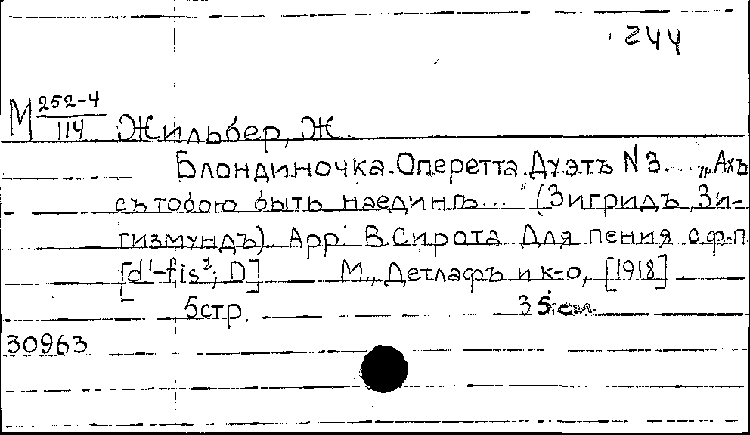 244
М 252-4
114
Жильбер, Ж.
Блондиночка. Оперетта. Дуэтъ N 3. „Ахъ
съ тобою быть наединѣ..." (Зигридъ, Зи-
гизмундъ). Арр. В. Сирота. Для пения с ф-п.
[d¹-fis²; D] М., Детлафъ и к-о, [1918]
5 стр. 35 см.
30963